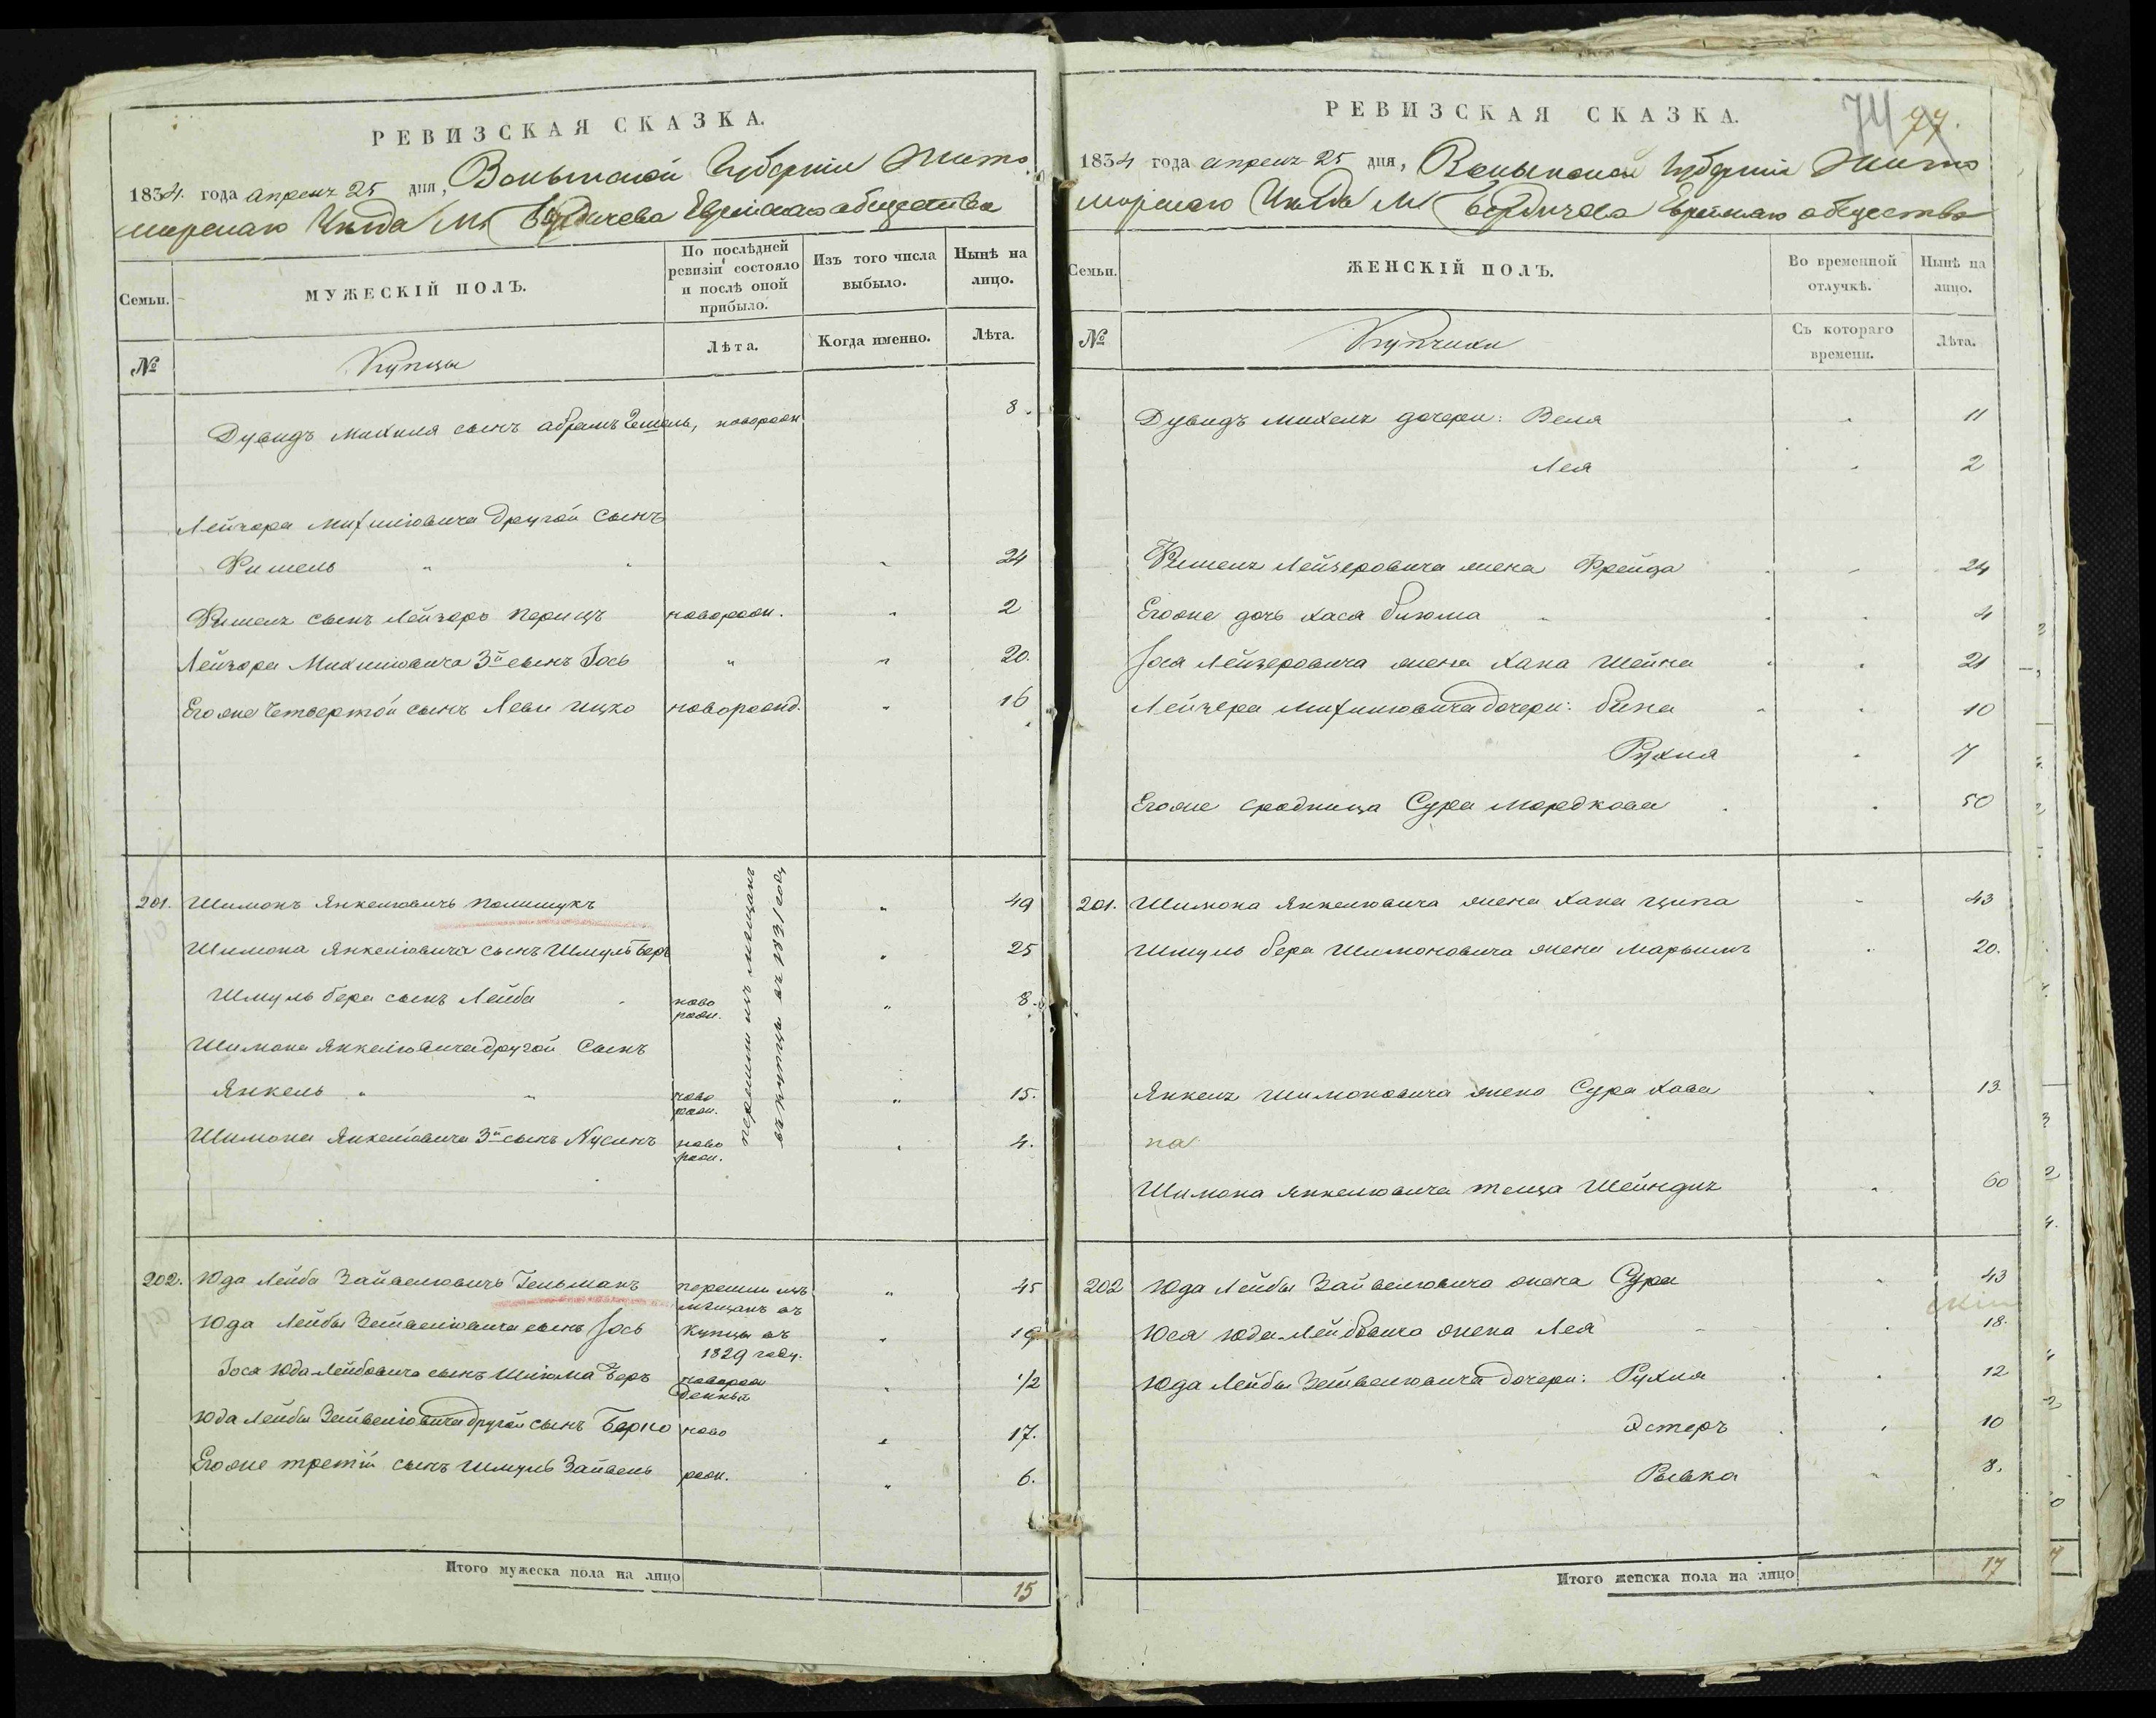 РЕВИЗСКАЯ СКАЗКА.
1834. года апреля 25 дня, Волынской Губернии Жито
мирскаго Уезда М. Бердичева Еврейскаго общества
Семьи.
МУЖЕСКІЙ ПОЛЪ.
По послѣдней
ревизіи состояло
и послѣ оной
прибыло.
Изъ того числа
выбыло.
Нынѣ на
лицо.
№
Купцы
Лѣта.
Когда именно.
Лѣта.
Дувидъ Михеля сынъ Абрамъ новорож 8.
Лейзора Михелiовича другой сынъ
Фишель 24
Фишеля сынъ Лейзоръ Перицъ новорож. 2
Лейзора Михелiовича 3й сынъ Iось 20.
Егоже Четвертой сынъ Леви Ицко новорожд. 16
201. Шимонъ Янкелiовичъ Полищукъ 49
Шимона Янкелiовича сынъ Шмуль Беръ 25
Шмуль Бера сынъ Лейба ново
рож. 8.
Шимона Янкелiовича другой Сынъ
Янкель ново
рож. 15.
Шимона Янкелiовича 3й сынъ Нусинъ ново
рож. 4.
перешли изъ мѣщанъ
въ купцы въ 1831 году
202. Юда Лейба Зайвелiовичъ Гельманъ перешли изъ 45
мѣщанъ въ
Юда Лейбы Зейвелiовича сынъ Iось купцы въ 19
1829 году.
Iося Юда Лейбовича сынъ Шлiома Беръ новорож
денный 1/2
Юда Лейбы Зейвелiовича другой сынъ Берко ново 17.
Егоже третiй сынъ Шмуль Зайвель рож. 6.
Итого мужеска пола на лицо
15
РЕВИЗСКАЯ СКАЗКА.
74 77.
1834 года апреля 25 дня, Волынской Губернiи Жито
мирскаго Уезда М Бердичева Еврейскаго общества
Семьи.
ЖЕНСКІЙ ПОЛЪ.
Во временной
отлучкѣ.
Нынѣ на
лицо.
№
Купчихи
Съ котораго
времени.
Лѣта.
Дувидъ Михеля дочери: Веля 11
Лея 2
Фишеля Лейзеровича жена Фрейда 24
Егоже дочь Хася Блюма 4
Iося Лейзеровича жена Хана Шейна 21
Лейзера Михелiовича дочери: Бина 10
Рухля 7
Егоже сродница Сура Мордкова 50
201. Шимона Янкелiовича жена Хана Ципа 43
Шмуль Бера Шимоновича жена Марьямъ 20.
Янкеля Шимоновича жена Сура Хава 13.
на
Шимона Янкелiовича теща Шейндля 60
202 Юда Лейбы Зайвелiовича жена Сура 43
Юся Юда Лейбовича жена Лея 18.
Юда Лейбы Зейвелiовича дочери: Рухля 12
Эстеръ 10
Рывка 8.
Итого женска пола на лицо
17